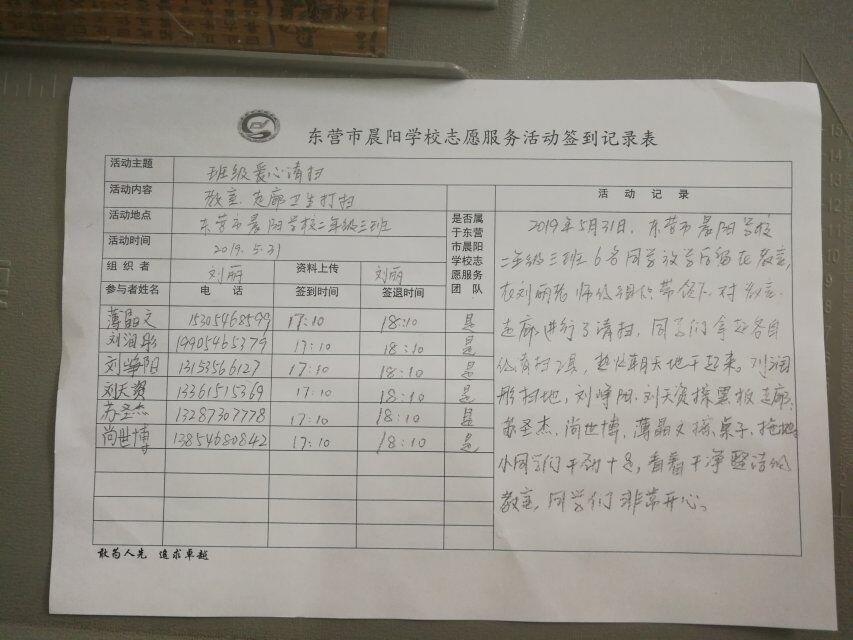 东营市晨阳学校志愿服务活动签到记录表
活动主题 班级爱心清扫
活动内容 教室、走廊卫生打扫
活动地点 东营市晨阳学校二年级三班
活动时间 2019.5.31
组织者 刘丽 资料上传 刘丽
参与者姓名 电话 签到时间 签退时间 是否属于东营市晨阳学校志愿服务团队
薄晶文 15305468599 17:10 18:10 是
刘润彤 19905465379 17:10 18:10 是
刘峥阳 13153566127 17:10 18:10 是
刘天资 13361515369 17:10 18:10 是
苏圣杰 13287307778 17:10 18:10 是
尚世博 13854680842 17:10 18:10 是
活动记录
2019年5月31日,东营市晨阳学校
二年级三班6名同学放学后留在教室,
在刘丽老师的组织带领下,对教室、
走廊进行了清扫,同学们拿起各自
的清扫工具,热火朝天地干起来。刘润
彤扫地,刘峥阳、刘天资擦黑板走廊,
苏圣杰、尚世博、薄晶文擦桌子、拖地,
小同学们干劲十足,看着干净整洁的
教室,同学们非常开心。
敢为人先 追求卓越